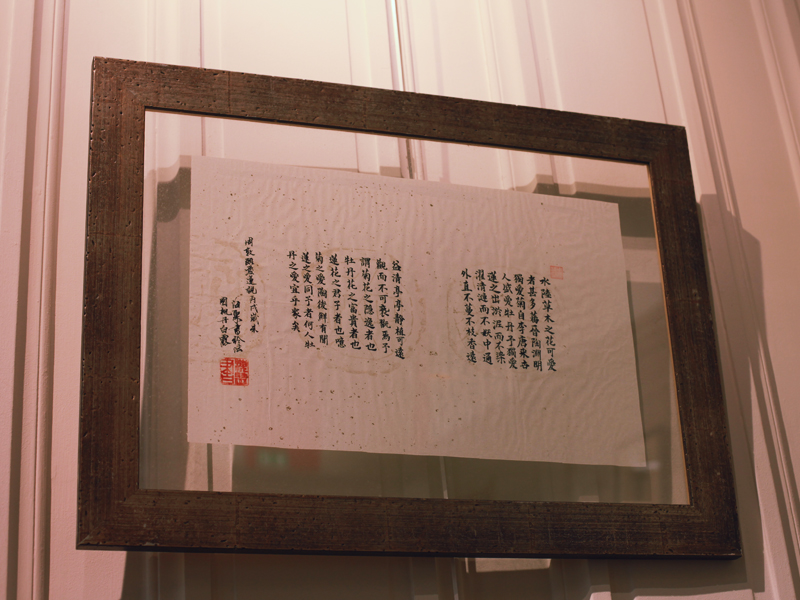 水陸草木之花可愛
者甚多蕃晉陶淵明
獨愛菊自李唐來世
人盛愛牡丹予獨愛
蓮之出淤泥而不染
濯清漣而不妖中通
外直不蔓不枝香遠
益清亭亭靜植可遠
觀而不可褻翫焉予
謂菊花之隱逸者也
牡丹花之富貴者也
蓮花之君子者也噫
菊之愛陶後鮮有聞
蓮之愛同予者何人牡
丹之愛宜乎衆矣
周敦頤愛蓮說